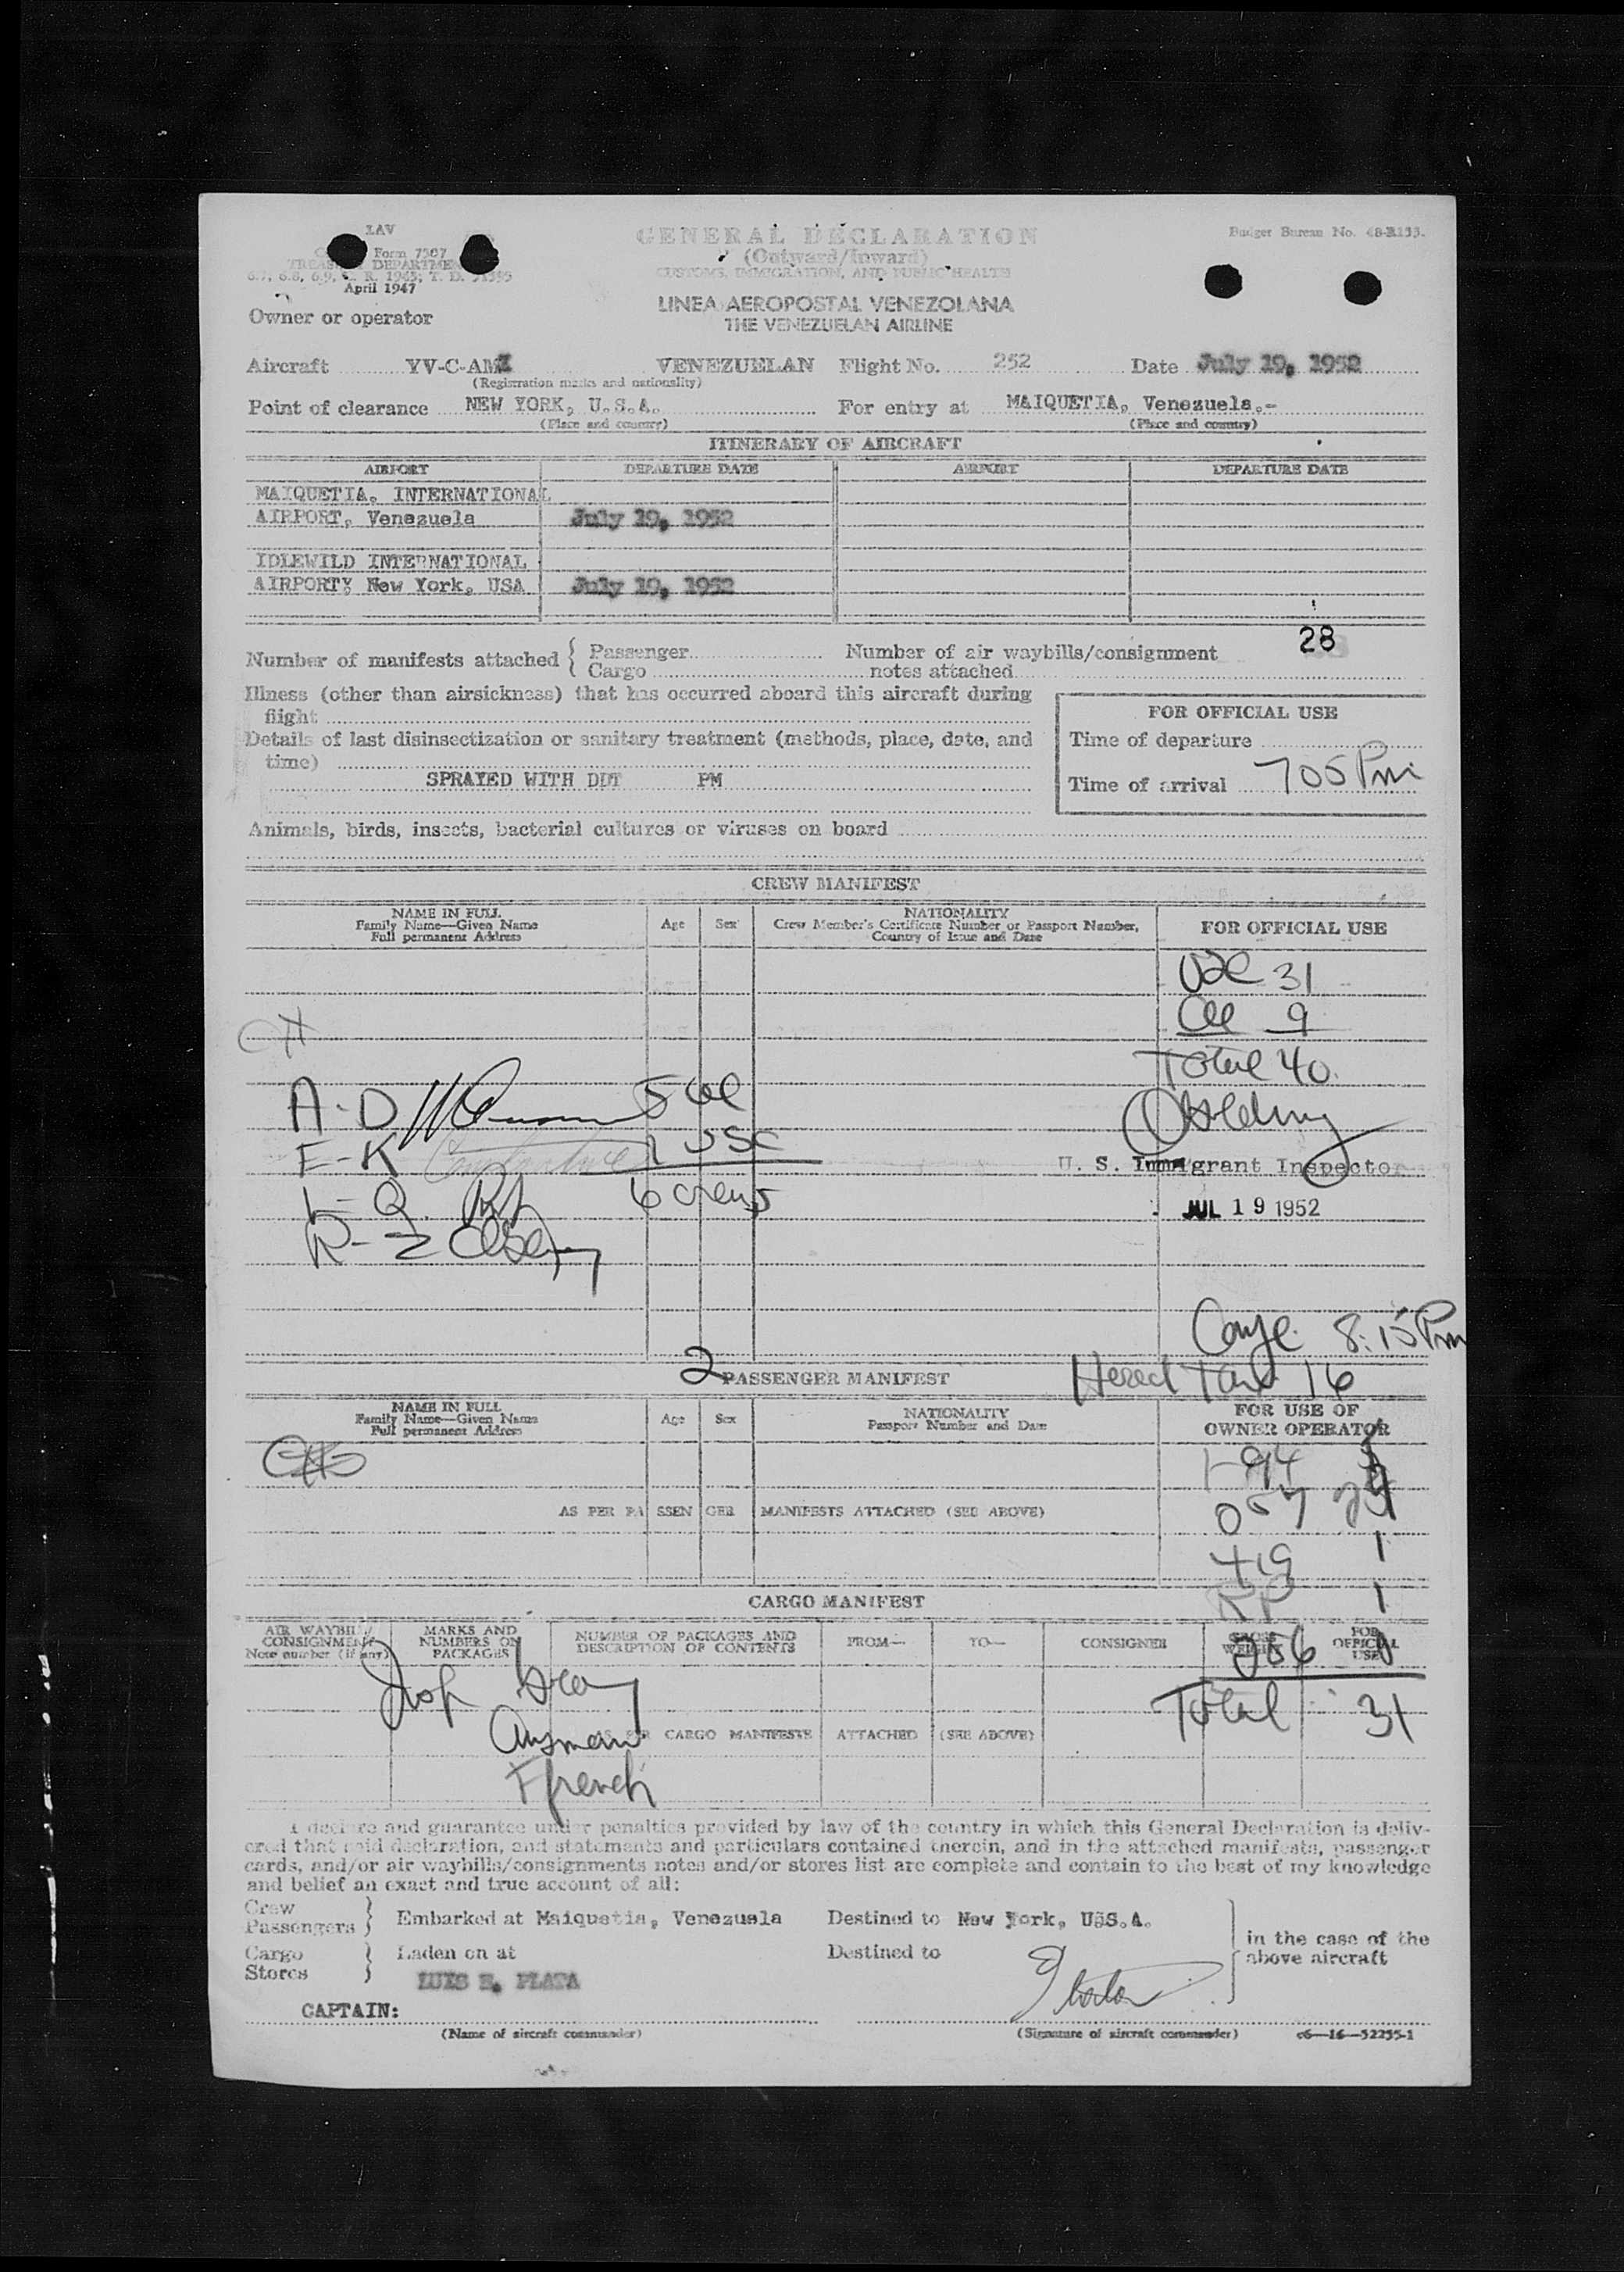 LAV
Form 7507
TREASURY DEPARTMENT
April 1947
GENERAL DECLARATION
(Outward/Inward)
CUSTOMS, IMMIGRATION, AND PUBLIC HEALTH
Budget Bureau No. 48-R133.
LINEA AEROPOSTAL VENEZOLANA
THE VENEZUELAN AIRLINE
Owner or operator
Aircraft YV-C-AM VENEZUELAN Flight No. 252 Date July 19, 1952
(Registration marks and nationality)
Point of clearance NEW YORK, U.S.A. For entry at MAIQUETIA, Venezuela.-
(Place and country) (Place and country)
ITINERARY OF AIRCRAFT
AIRPORT DEPARTURE DATE AIRPORT DEPARTURE DATE
MAIQUETIA, INTERNATIONAL
AIRPORT, Venezuela July 19, 1952
IDLEWILD INTERNATIONAL
AIRPORT, New York, USA July 19, 1952
28
Number of manifests attached { Passenger Number of air waybills/consignment
Cargo notes attached
Illness (other than airsickness) that has occurred aboard this aircraft during
flight
FOR OFFICIAL USE
Details of last disinsectization or sanitary treatment (methods, place, date, and
time)
Time of departure
SPRAYED WITH DDT PM
Time of arrival 705 Pm
Animals, birds, insects, bacterial cultures or viruses on board
CREW MANIFEST
NAME IN FULL
Family Name—Given Name
Full permanent Address
Age Sex
NATIONALITY
Crew Member's Certificate Number or Passport Number,
Country of Issue and Date
FOR OFFICIAL USE
31
9
Total 40
A-D 5
E-K 1 USC
L-Q 6 crew
R-Z
U. S. Immigrant Inspector
JUL 19 1952
8:15 Pm
2 PASSENGER MANIFEST Head Tax 16
NAME IN FULL
Family Name—Given Name
Full permanent Address
Age Sex
NATIONALITY
Passport Number and Date
FOR USE OF
OWNER OPERATOR
I-94
AS PER PASSENGER MANIFESTS ATTACHED (SEE ABOVE)
057
419 1
RP 1
CARGO MANIFEST
AIR WAYBILL/
CONSIGNMENT
Note number (if any)
MARKS AND
NUMBERS ON
PACKAGES
NUMBER OF PACKAGES AND
DESCRIPTION OF CONTENTS
FROM— TO— CONSIGNEE
GROSS
WEIGHT
FOR
OFFICIAL
USE
256
Insp Gray
Total 31
AS PER CARGO MANIFESTS ATTACHED (SEE ABOVE)
Ffrench
I declare and guarantee under penalties provided by law of the country in which this General Declaration is deliv-
ered that said declaration, and statements and particulars contained therein, and in the attached manifests, passenger
cards, and/or air waybills/consignments notes and/or stores list are complete and contain to the best of my knowledge
and belief an exact and true account of all:
Crew
Passengers } Embarked at Maiquetia, Venezuela Destined to New York, U.S.A.
in the case of the
above aircraft
Cargo
Stores } Laden on at Destined to
LUIS E. PLATA
CAPTAIN:
(Name of aircraft commander) (Signature of aircraft commander) c6—16—52255-1